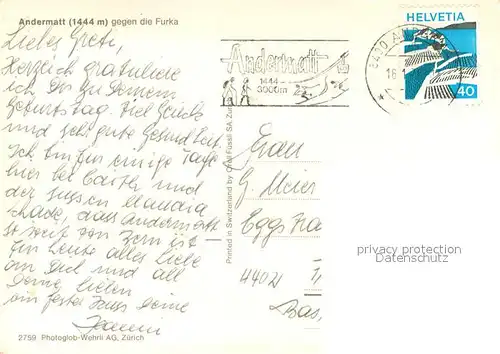 Andermatt (1444 m) gegen die Furka
Liebes Greti,
Herzlich gratuliere
ich Dir zu Deinem
Geburtstag. Viel Glück
und sehr gute Gesundheit.
Ich bin für einige Tage
hier bei und
der Claudia
schade, dass Andermatt
so weit von ist
Für heute alles Liebe
an Dich und all
Deine Lieben
ein fester Kuss Deine
HELVETIA
40
Andermatt
1444
3000m
Printed in Switzerland by Orell Füssli SA
Frau
G. Meier
4402
Bas
privacy protection
DELCAMPE
2759 Photoglob-Wehrli AG, Zürich